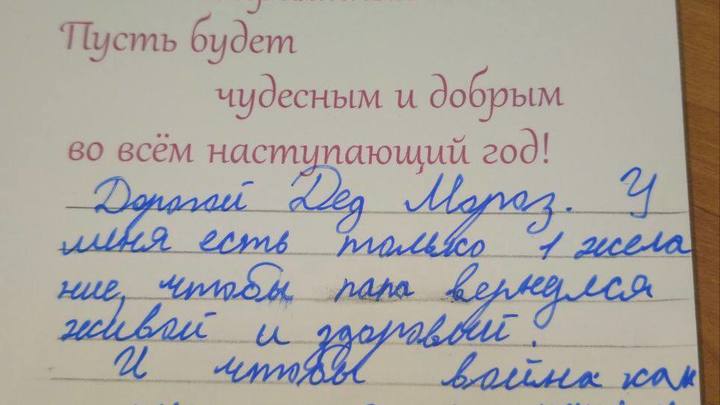 Пусть будет
чудесным и добрым
во всём наступающий год!
Дорогой Дед Мороз. У
меня есть только 1 жела
ние, чтобы папа вернулся
живой и здоровый.
И чтобы война как